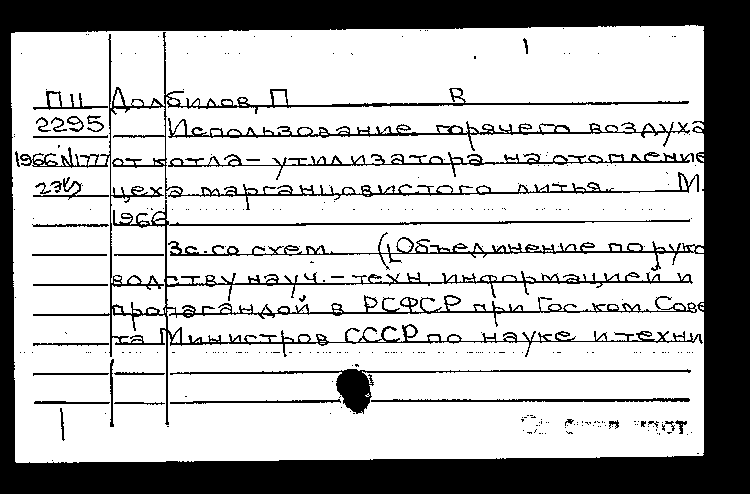 П11 Долбилов, П В
2295 Использование горячего воздуха
1966 N1777 от котла - утилизатора на отопление
цеха марганцовистого литья. М.
1966.
3с. со схем. (Объединение по руко
водству науч. - техн. информацией и
пропагандой в РСФСР при Гос. ком. Сове
та Министров СССР по науке и техни